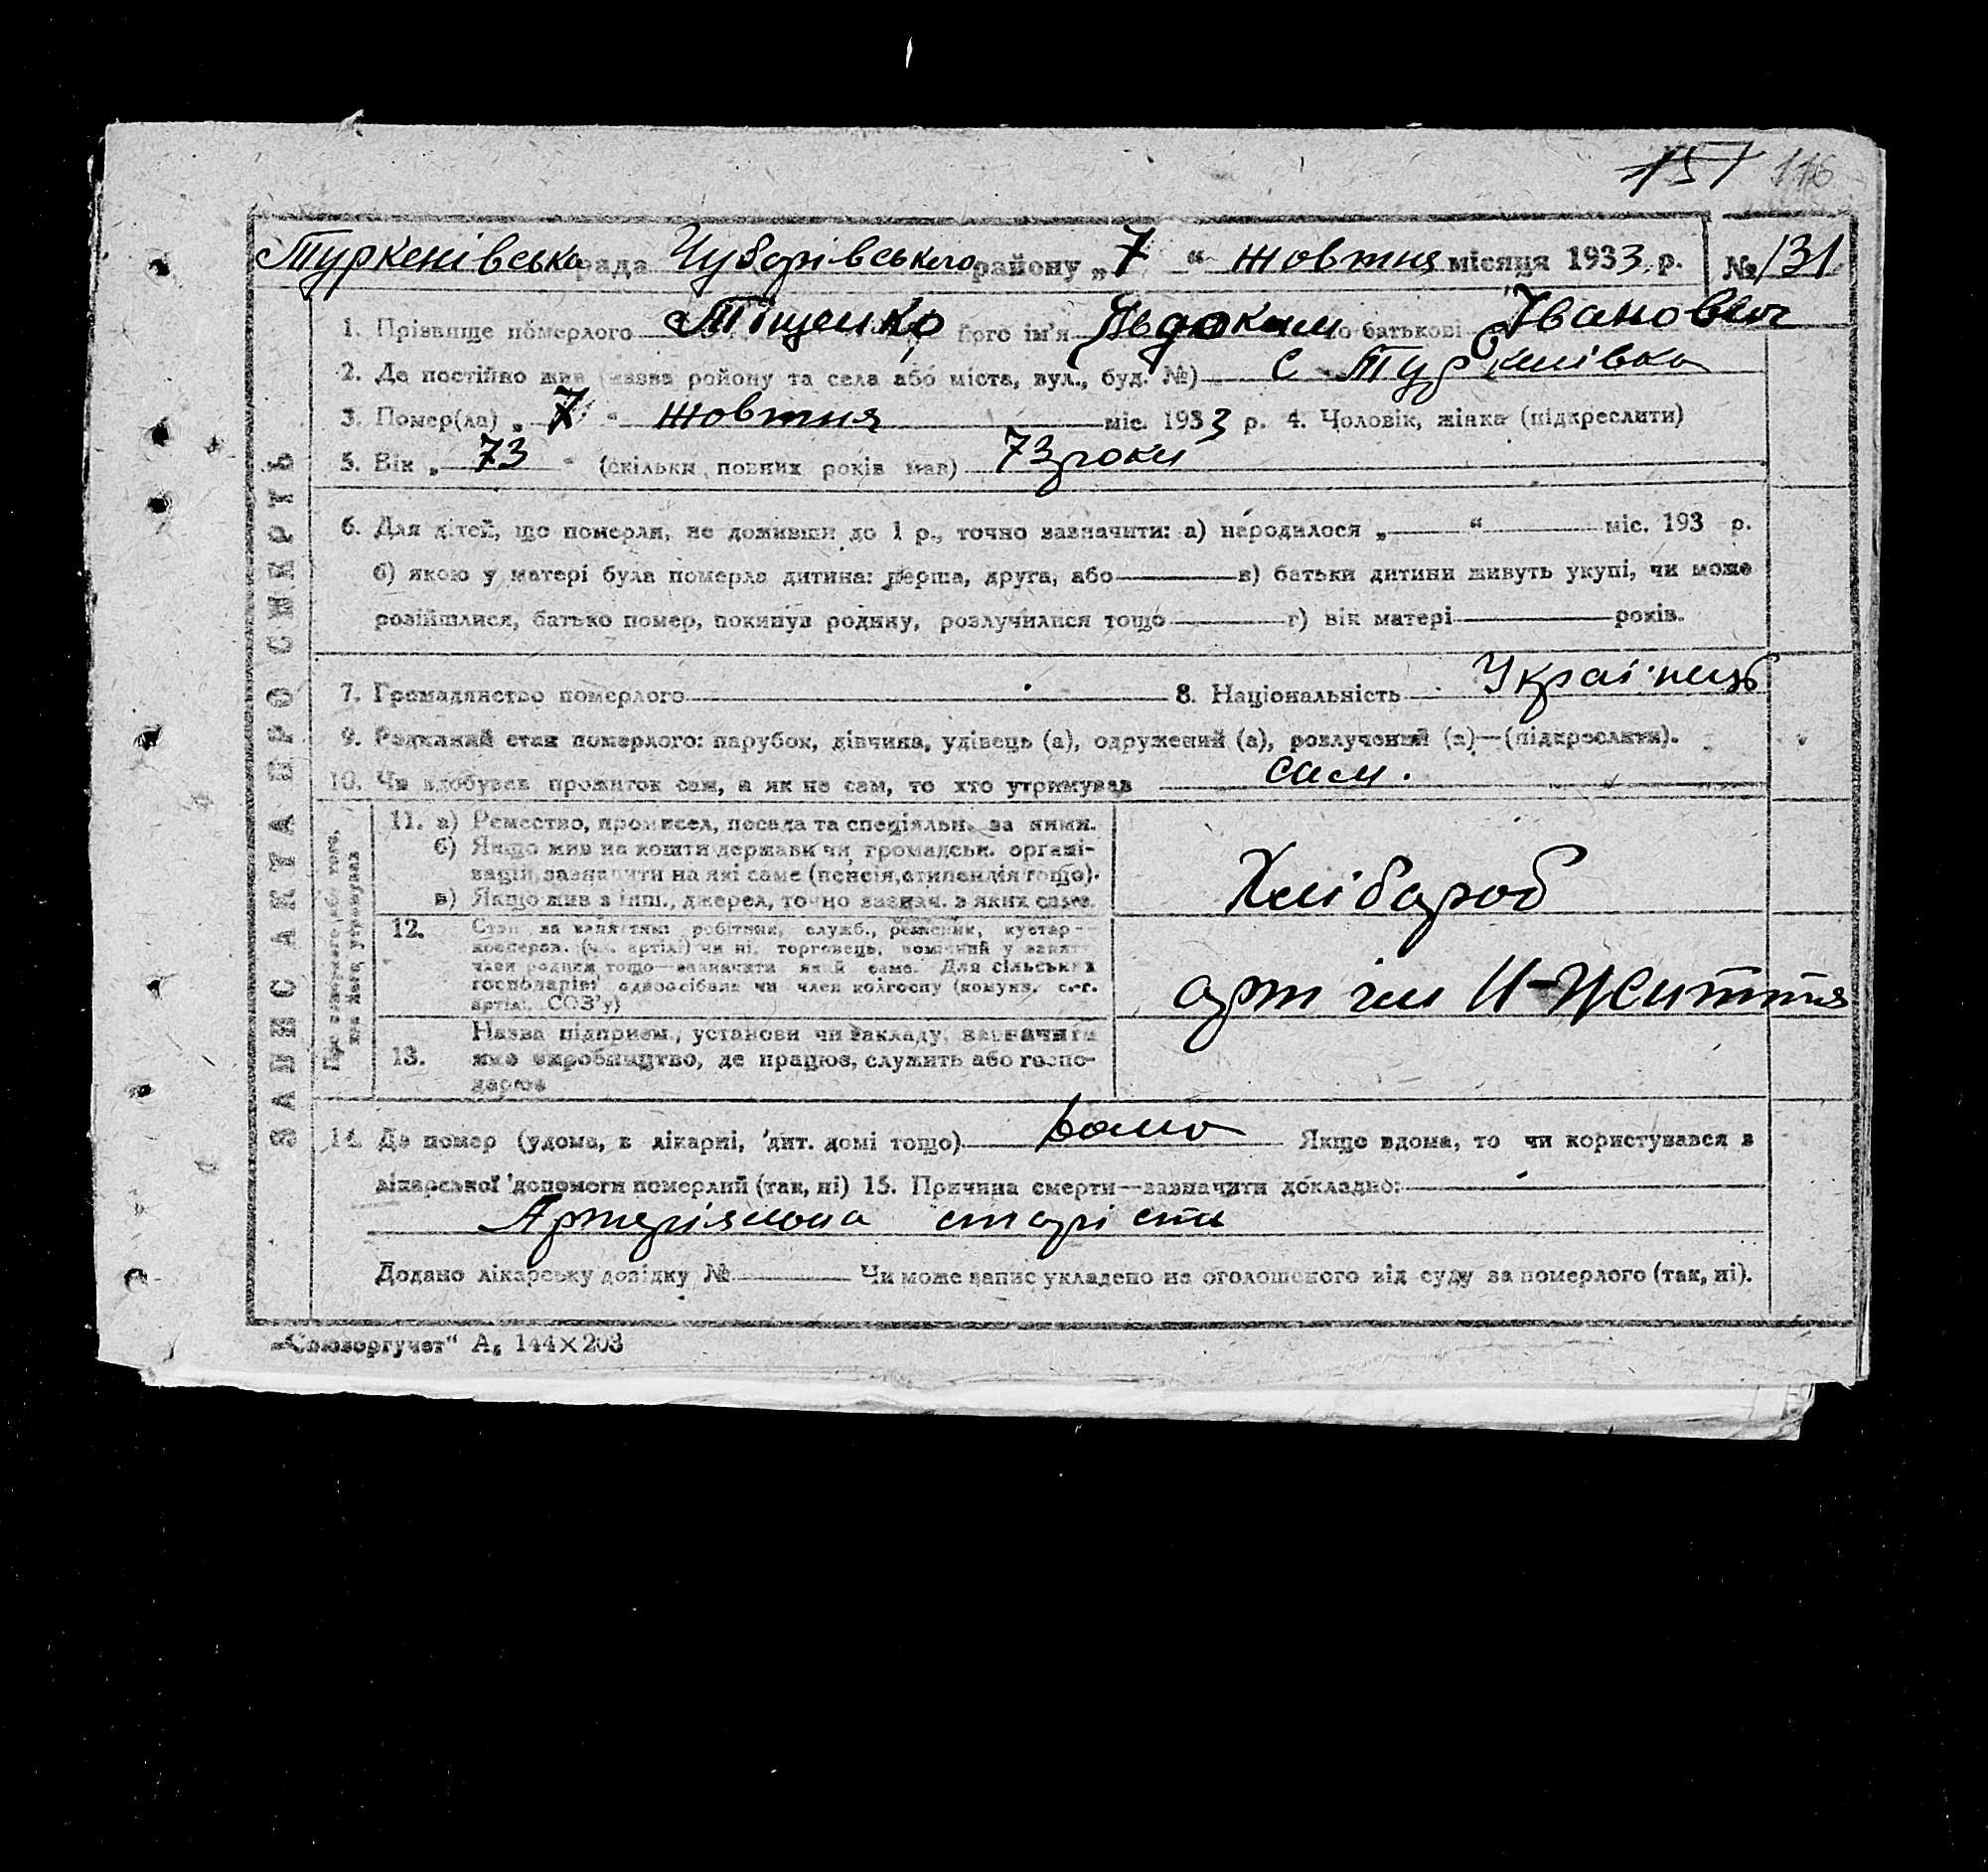 157 116
Туркенівська рада Чубарівського району „7“ жовтня місяця 1933 р. № 131
1. Прізвище померлого Тіщенко його ім'я Явдоким по батькові Іванович
2. Де постійно жив (назва району та села або міста, вул., буд. №) с Туркенівка
3. Помер(ла) „7“ жовтня міс. 1933 р. 4. Чоловік, жінка (підкреслити)
5. Вік „73“ (скільки повних років мав) 73 роки
6. Для дітей, що померли, не доживши до 1 р., точно зазначити: а) народилося „ “ міс. 193 р.
б) якою у матері була померла дитина: перша, друга, або в) батьки дитини живуть укупі, чи може
розійшлися, батько помер, покинув родину, розлучилися тощо г) вік матері років.
7. Громадянство померлого 8. Національність Украінець
9. Родинний стан померлого: парубок, дівчина, удівець (а), одружений (а), розлучений (а)—(підкреслити).
10. Чи здобував прожиток сам, а як не сам, то хто утримував сам.
11. а) Ремество, промисел, посада та спеціяльн. за ними.
б) Якщо жив на кошти держави чи громадськ. органі-
зацій, зазначити на які саме (пенсія, стипендія тощо).
в) Якщо жив з інш., джерел, точно зазнач. з яких саме.
Хлібароб
12. Стан за заняттям: робітник, служб., ремісник, кустар-
кооперов. (чл. артілі) чи ні, торговець, помічний у занятт.
член родини тощо—зазначити який саме. Для сільських
господарів: одноосібник чи член колгоспу (комуни, с.-г.
артілі, СОЗ'у)
артіли Н-Життя
13. Назва підприєм., установи чи закладу, зазначити
яке виробництво, де працює, служить або госпо-
дарює
14. Де помер (удома, в лікарні, дит. домі тощо) Якщо вдома, то чи користувався з
лікарської допомоги померлий (так, ні) 15. Причина смерти—зазначити докладно:
старість
Додано лікарську довідку № Чи може запис укладено на оголошеного від суду за померлого (так, ні).
„Союзоргучет“ А₅ 144×203
ЗАПИС АКТА ПРО СМЕРТЬ